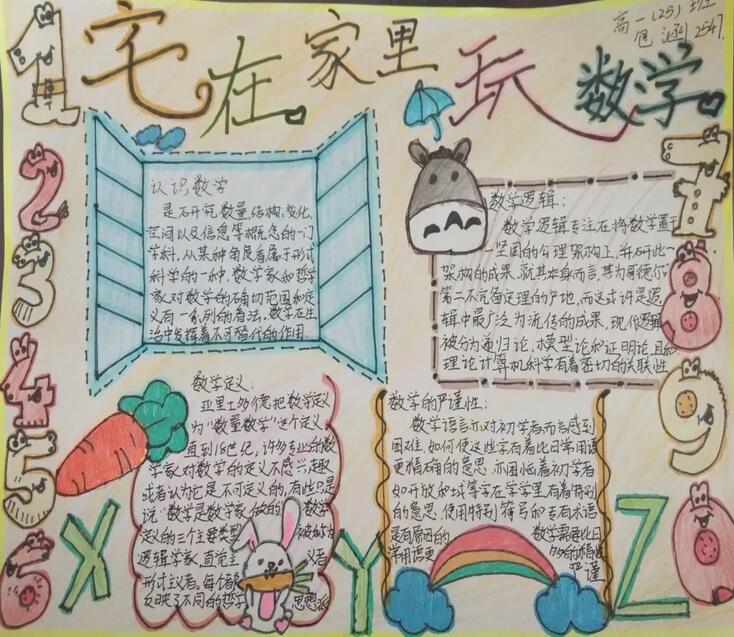 高一(25)班
包涵 2547.
宅在家里玩数学
1
2
3
4
5
6
7
8
9
0
认识数学
是研究数量、结构、变化、
空间以及信息等概念的一门
学科,从某种角度看属于形式
科学的一种,数学家和哲学
家对数学的确切范围和定
义有一系列的看法,数学在生
活中发挥着不可替代的作用
数学逻辑:
数学逻辑专注在将数学置于
坚固的公理架构上,并研此一
架构的成果,就其本身而言,其为哥德尔
第二不完备定理的产地,而这或许是逻
辑中最广泛为流传的成果,现代逻辑
被分为递归论、模型论和证明论,且和
理论计算机科学有着密切的关联性
数学定义:
亚里士多德把数学定义
为"数量数学"这个定义
直到18世纪,许多专业的数
学家对数学的定义不感兴趣
或者认为它是不可定义的,有些只是
说"数学是数学家做的 数学
定义的三个主要类型 被称为
逻辑学家,直觉主 义者
形式主义者,每个都
反映了不同的哲学 思想派
数学的严谨性:
数学语言亦对初学者而言感到
困难,如何使这些字有着比日常用语
更精确的意思,亦困恼着初学者
如开放和域等字在学学里有着特别
的意思,使用特别符号和专有术语
是有原因的 数学需要比日
常用语更 多的精确
严谨
X
Y
Z